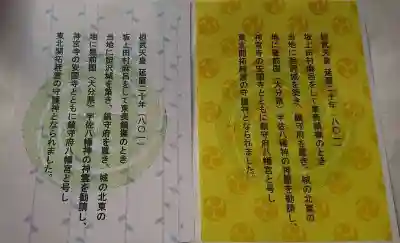 桓武天皇 延暦二十年(八〇一)
坂上田村麻呂をして東夷鎮撫のとき
当地に胆沢城を築き、鎮守府を置き、城の北東の
地に豊前国(大分県)宇佐八幡神の神霊を勧請し、
神宮寺の安国寺とともに鎮守府八幡宮と号し
東北開拓経営の守護神となられました。
桓武天皇 延暦二十年(八〇一)
坂上田村麻呂をして東夷鎮撫のとき
当地に胆沢城を築き、鎮守府を置き、城の北東の
地に豊前国(大分県)宇佐八幡神の神霊を勧請し、
神宮寺の安国寺とともに鎮守府八幡宮と号し
東北開拓経営の守護神となられました。